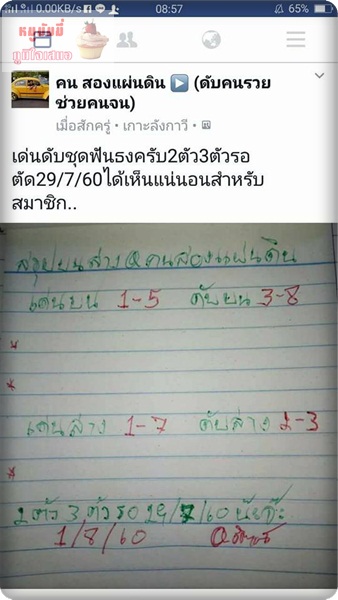 0.00KB/s 08:57 65%
หมูมัมมี่
ภูมิใจเสนอ
คน สองแผ่นดิน ▶ (ดับคนรวย
ช่วยคนจน)
เมื่อสักครู่ • เกาะลังกาวี •
เด่นดับชุดฟันธงครับ2ตัว3ตัวรอ
ตัด29/7/60ได้เห็นแน่นอนสำหรับ
สมาชิก..
สรุปบนล่าง คนสองแผ่นดิน
เด่นบน 1-5 ดับบน 3-8
เด่นล่าง 1-7 ดับล่าง 2-3
2 ตัว 3 ตัว รอ 29/7/60
1/8/60